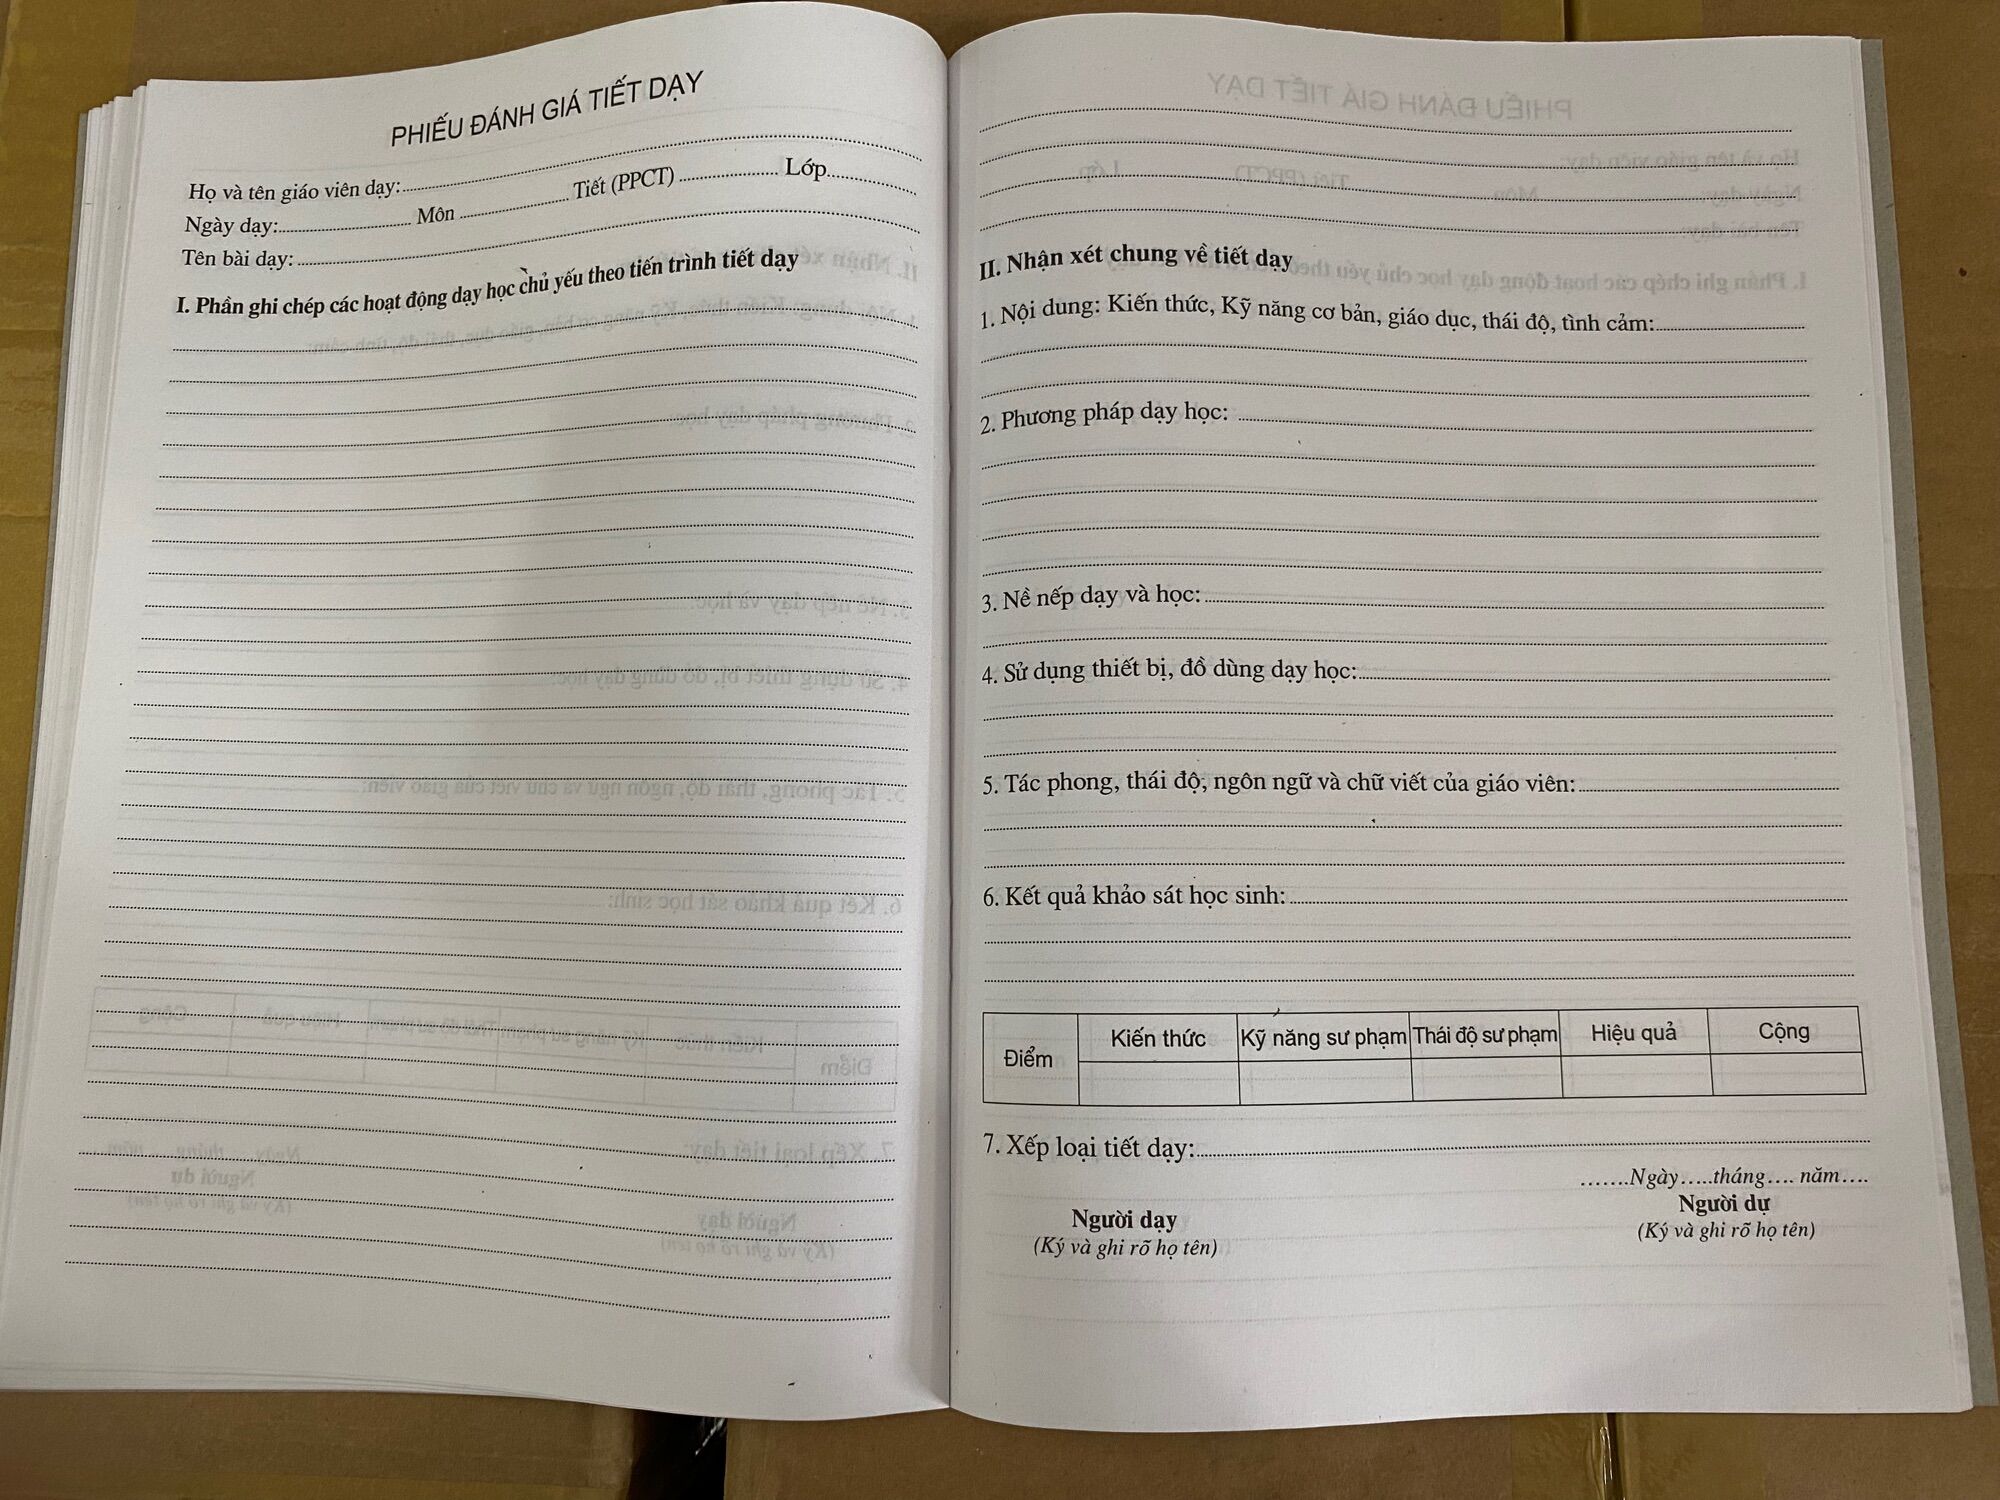 PHIẾU ĐÁNH GIÁ TIẾT DẠY
Họ và tên giáo viên dạy:
Ngày dạy: Môn Tiết (PPCT) Lớp
Tên bài dạy:
I. Phần ghi chép các hoạt động dạy học chủ yếu theo tiến trình tiết dạy
II. Nhận xét chung về tiết dạy
1. Nội dung: Kiến thức, Kỹ năng cơ bản, giáo dục, thái độ, tình cảm:
2. Phương pháp dạy học:
3. Nề nếp dạy và học:
4. Sử dụng thiết bị, đồ dùng dạy học:
5. Tác phong, thái độ, ngôn ngữ và chữ viết của giáo viên:
6. Kết quả khảo sát học sinh:
Điểm Kiến thức Kỹ năng sư phạm Thái độ sư phạm Hiệu quả Cộng
7. Xếp loại tiết dạy:
.......Ngày.....tháng.... năm....
Người dạy Người dự
(Ký và ghi rõ họ tên) (Ký và ghi rõ họ tên)